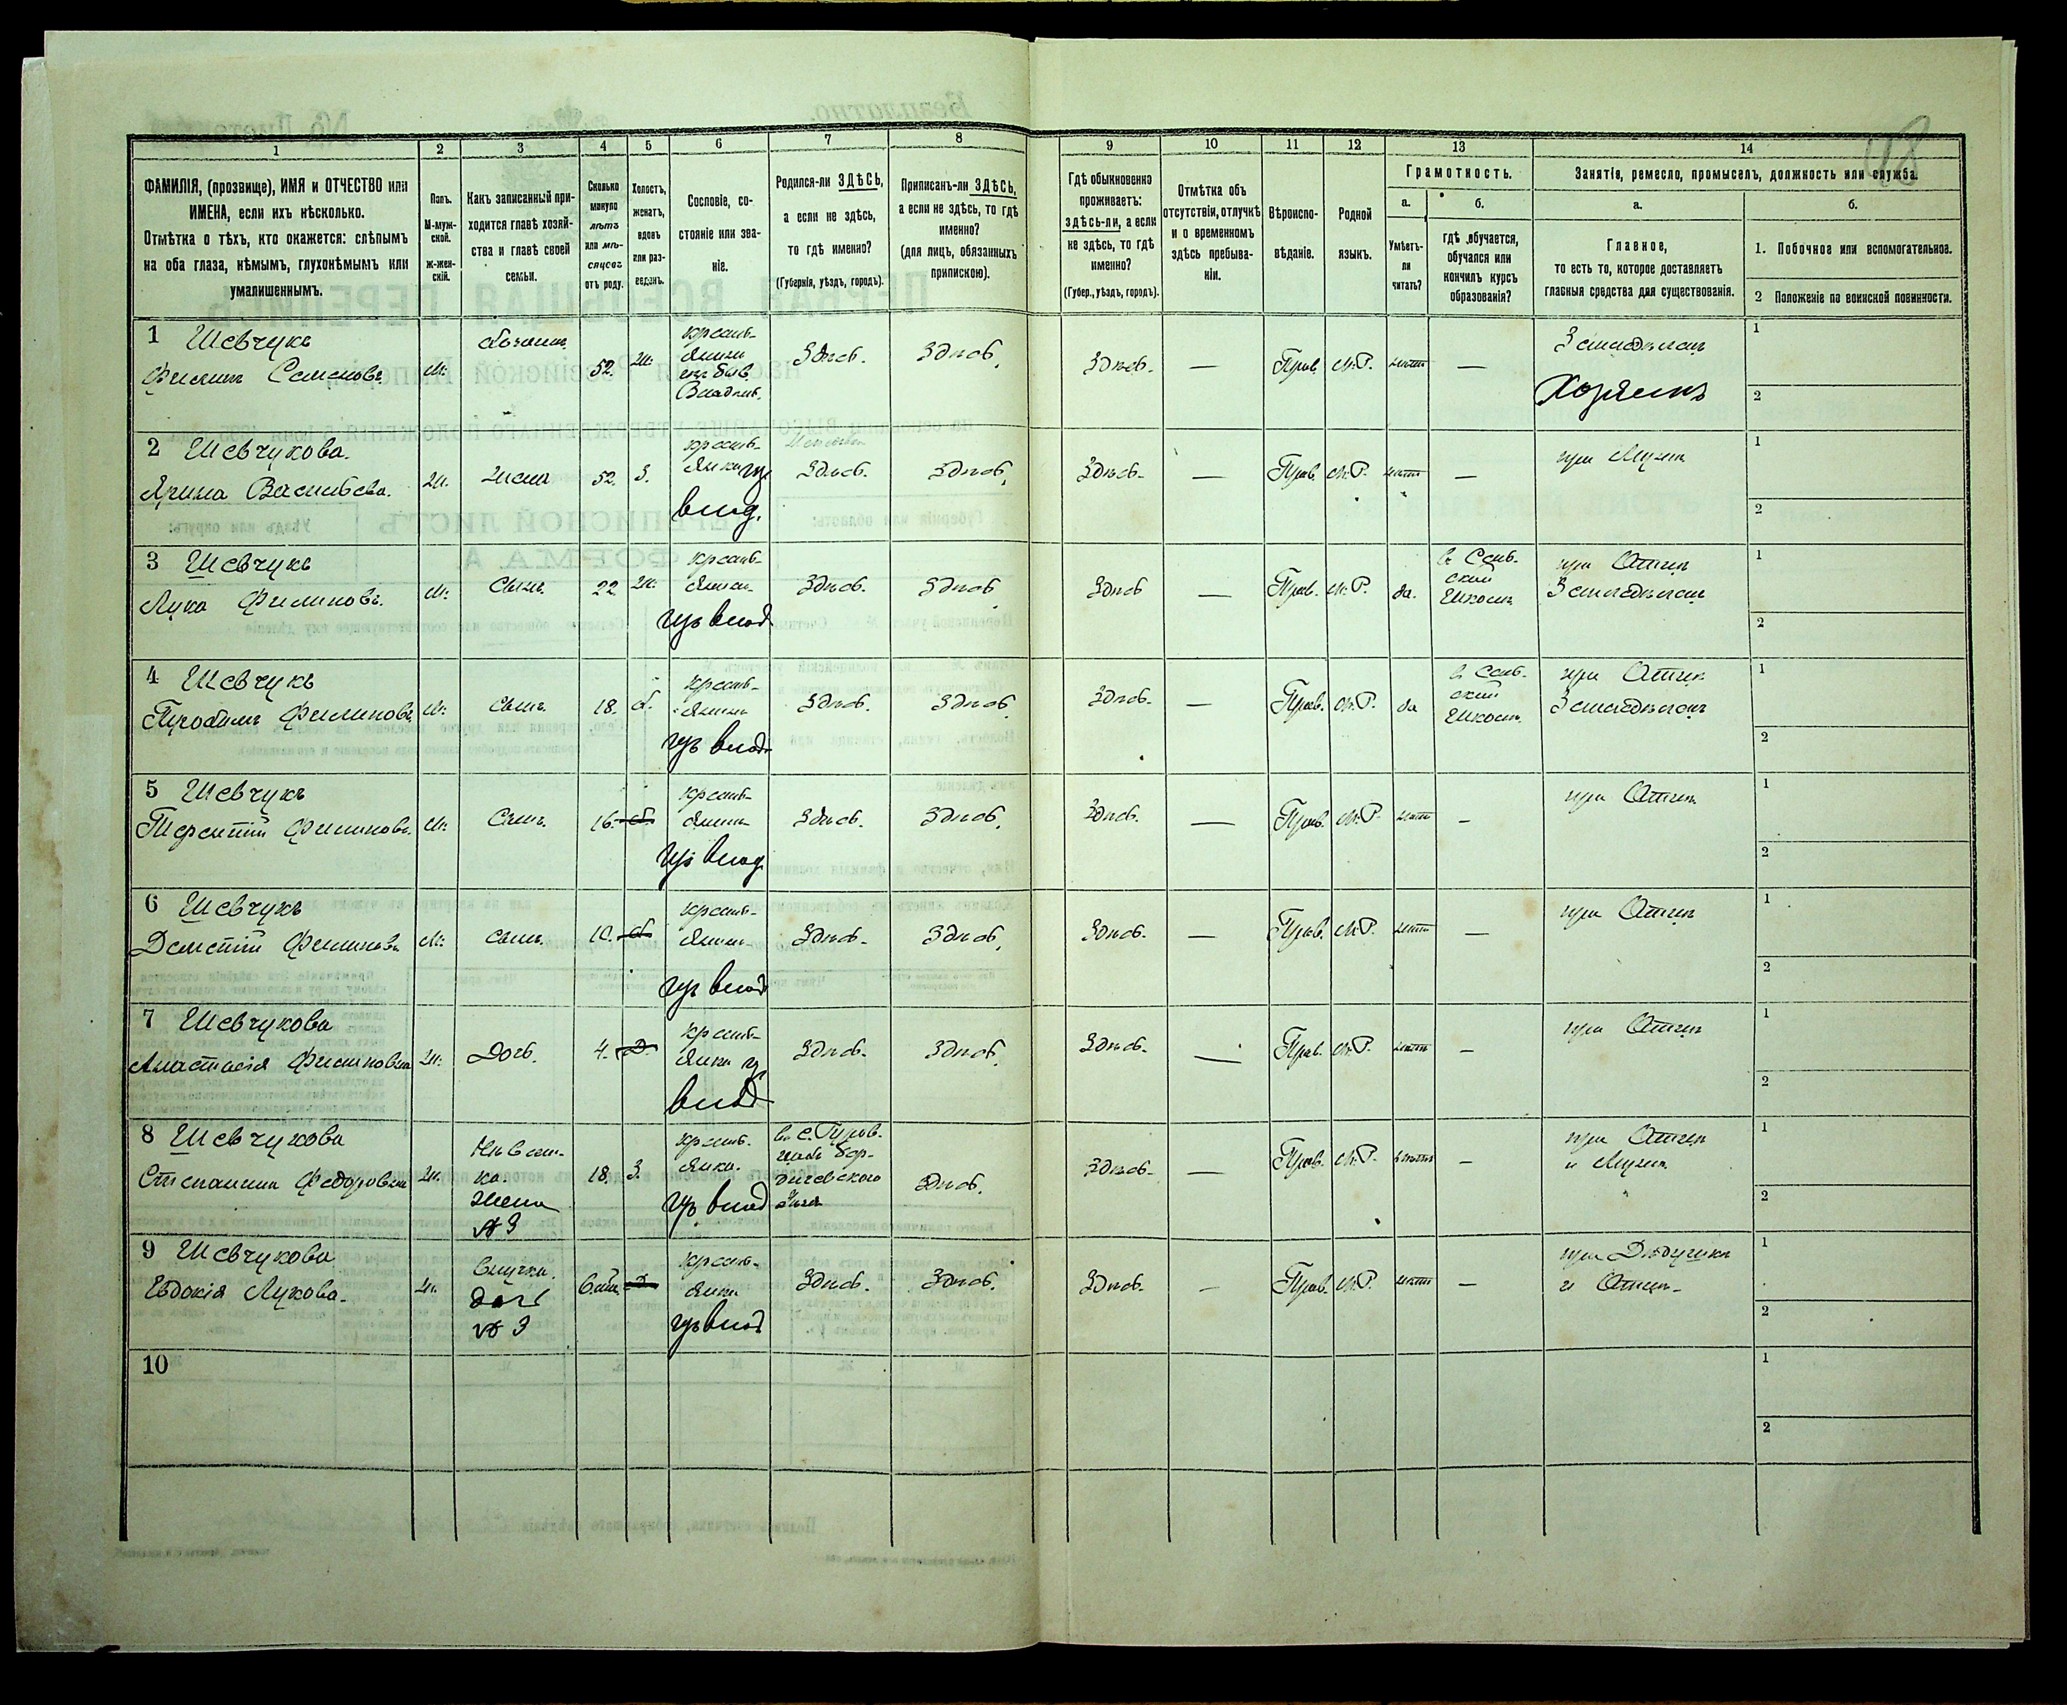 98
1 2 3 4 5 6 7 8 9 10 11 12 13 14
ФАМИЛІЯ, (прозвище), ИМЯ и ОТЧЕСТВО или ИМЕНА, если ихъ нѣсколько.
Отмѣтка о тѣхъ, кто окажется: слѣпымъ на оба глаза, нѣмымъ, глухонѣмымъ или умалишеннымъ.
Полъ.
М-мужской.
Ж-женскій.
Какъ записанный приходится главѣ хозяйства и главѣ своей семьи.
Сколько минуло лѣтъ или мѣсяцевъ отъ роду.
Холостъ, женатъ, вдовъ или разведенъ.
Сословіе, состояніе или званіе.
Родился-ли ЗДѢСЬ, а если не здѣсь, то гдѣ именно?
(Губернія, уѣздъ, городъ).
Приписанъ-ли ЗДѢСЬ, а если не здѣсь, то гдѣ именно?
(для лицъ, обязанныхъ припискою).
Гдѣ обыкновенно проживаетъ: здѣсь-ли, а если не здѣсь, то гдѣ именно?
(Губер., уѣздъ, городъ).
Отмѣтка объ отсутствіи, отлучкѣ и о временномъ здѣсь пребываніи.
Вѣроисповѣданіе.
Родной языкъ.
Грамотность.
а.
Умѣетъ-ли читать?
б.
гдѣ обучается, обучался или кончилъ курсъ образованія?
Занятіе, ремесло, промыселъ, должность или служба.
а.
Главное,
то есть то, которое доставляетъ главныя средства для существованія.
б.
1. Побочное или вспомогательное.
2 Положеніе по воинской повинности.
1 Шевчукъ
Филипъ Семеновъ. м. хозяинъ 52. ж. крестьянинъ изъ быв. Владѣл. Здѣсь. Здѣсь. Здѣсь. — Прав. М.Р. нѣтъ — Земледѣлецъ
Хозяинъ
1
2
2 Шевчукова.
Ярина Васильева. ж. жена 52. З. крестьянка изъ влад. Здѣсь. Здѣсь. Здѣсь. — Прав. М.Р. нѣтъ — при Мужѣ
1
2
3 Шевчукъ
Лука Филиповъ. м. сынъ. 22 ж. крестьянинъ изъ влад. Здѣсь. Здѣсь Здѣсь — Прав. М.Р. да. в Сельской Школѣ при Отцѣ Земледѣлецъ
1
2
4 Шевчукъ
Трофимъ Филиповъ. м. сынъ. 18. х. крестьянинъ изъ влад. Здѣсь. Здѣсь Здѣсь. — Прав. М.Р. да в Сельской Школѣ при Отцѣ Земледѣлецъ
1
2
5 Шевчукъ
Терентій Филиповъ. м. Сынъ. 16. х. крестьянинъ изъ влад. Здѣсь. Здѣсь. Здѣсь. — Прав. М.Р. нѣтъ — при Отцѣ
1
2
6 Шевчукъ
м. сынъ. 10. х. крестьянинъ изъ влад Здѣсь. Здѣсь. Здѣсь. — Прав. М.Р. нѣтъ — при Отцѣ
1
2
7 Шевчукова
Анастасія Филиповна ж. Дочь. 4. Д. крестьянка изъ влад Здѣсь. Здѣсь. Здѣсь. — Прав. М.Р. нѣтъ — при Отцѣ
1
2
8 Шевчукова
Степанида Федоровна ж. Невѣстка. жена № 3 18. З. крестьянка. изъ влад Здѣсь. Здѣсь. — Прав. М.Р. нѣтъ — при Отцѣ и Мужѣ
1
2
9 Шевчукова
Евдокія Лукова. ж. внучка. дочь № 3 6 Д. крестьянка изъ влад Здѣсь. Здѣсь. Здѣсь. — Прав. М.Р. нѣтъ — при Дѣдушкѣ и Отцѣ.
1
2
10
1
2